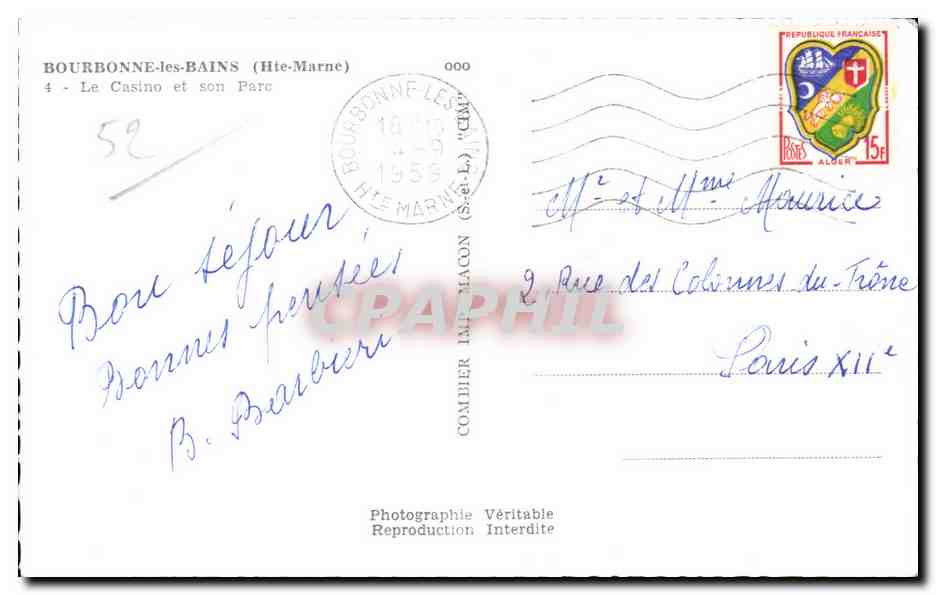 BOURBONNE-les-BAINS (Hte-Marne)
4 - Le Casino et son Parc
52
ooo
BOURBONNE-LES-BAINS
18
4 - 9
1959
HTE MARNE
REPUBLIQUE FRANÇAISE
POSTES
ALGER
15F
COMBIER IMP. MACON (S.-et-L.) "CIM"
Bon séjour,
Bonnes pensées
B. Barbieri
Mr et Mme Maurice
2, Rue des Colonnes du-Trône
Paris XIIe
CPAPHIL
Photographie Véritable
Reproduction Interdite